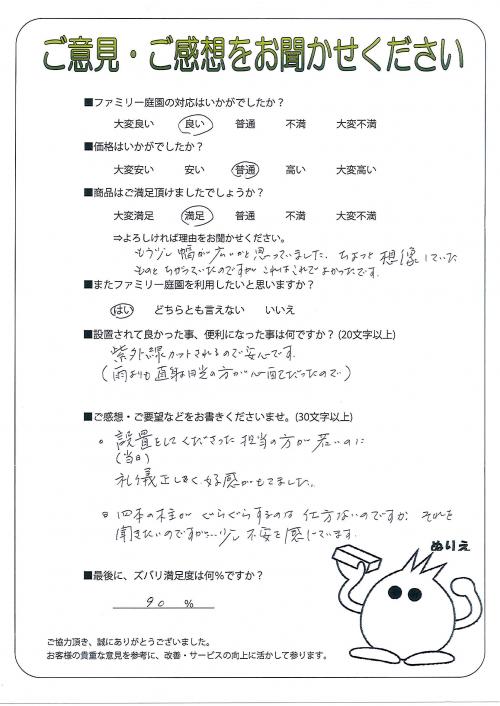 ご意見・ご感想をお聞かせください
■ファミリー庭園の対応はいかがでしたか？
大変良い 良い 普通 不満 大変不満
■価格はいかがでしたか？
大変安い 安い 普通 高い 大変高い
■商品はご満足頂けましたでしょうか？
大変満足 満足 普通 不満 大変不満
⇒よろしければ理由をお聞かせください。
もう少し幅が広いかと思っていました。ちょっと想像していた
ものとちがっていたのですが これはこれでよかったです。
■またファミリー庭園を利用したいと思いますか？
はい どちらとも言えない いいえ
■設置されて良かった事、便利になった事は何ですか？(20文字以上)
紫外線カットされるので安心です。
(雨よりも直射日光の方が心配だったので)
■ご感想・ご要望などをお書きくださいませ。(30文字以上)
設置をしてくださった担当の方が若いのに
(当日)
礼儀正しく好感がもてました。
四本の柱がぐらぐらするのは仕方ないのですか
聞きたいのですが…少し不安を感じています。
ぬりえ
■最後に、ズバリ満足度は何％ですか？
90 %
ご協力頂き、誠にありがとうございました。
お客様の貴重な意見を参考に、改善・サービスの向上に活かして参ります。